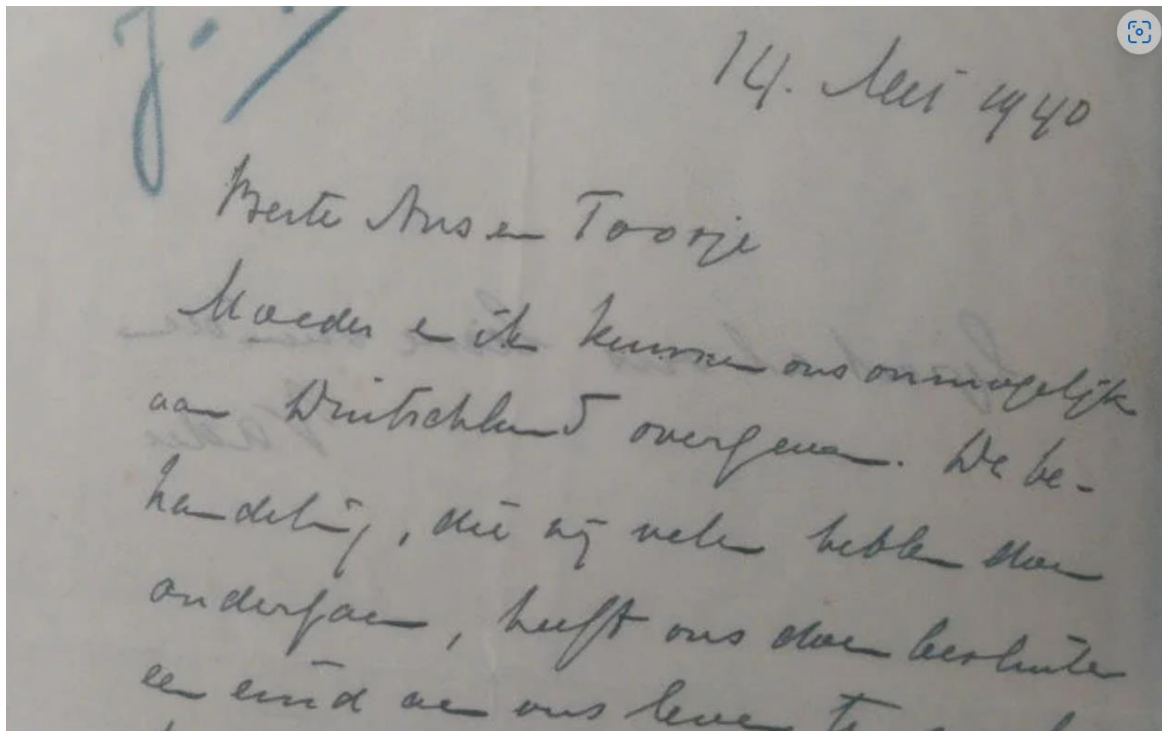 J.
14. Mei 1940
Beste Ans en Toosje
Moeder en ik kunnen ons onmogelijk
aan Duitschland overgeven. De be-
handeling, die zij velen hebben doen
ondergaan, heeft ons doen besluiten
een eind aan ons leven te